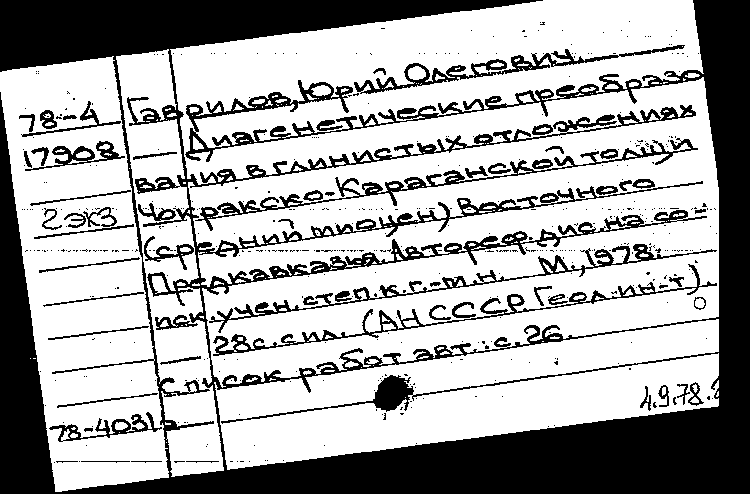 78-4 Гаврилов, Юрий Олегович.
17908 Диагенетические преобразо
вания в глинистых отложениях
2 экз Чокракско-Караганской толщи
(средний миоцен) Восточного
Предкавказья. Автореф. дис. на со-
иск. учен. степ. к. г.-м. н. М., 1978.
28 с. с ил. (АН СССР. Геол. ин-т).
Список работ авт.: с. 26.
78-40315
4.9.78.